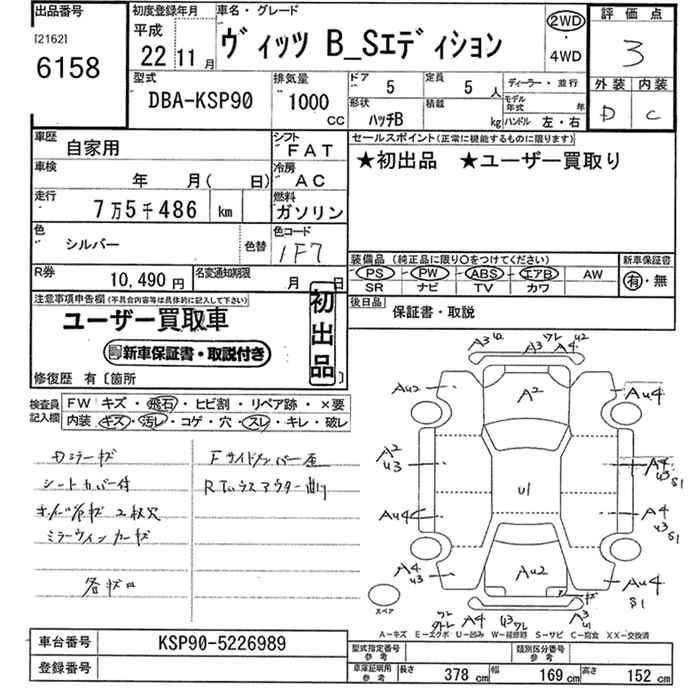 出品番号
[2162]
6158
初度登録年月
平成
22 11月
車名・グレード
ヴィッツ B_Sエディション
2WD
・
4WD
評価点
3
外装 内装
D C
型式
DBA-KSP90
排気量
1000
CC
ドア
5
定員
5 人
ディーラー・並行
形状
ハッチB
積載
kg
モデル年式 年
ハンドル 左・右
車歴
自家用
シフト
FAT
車検
年 月( 日)
冷房
AC
走行
7万5千486 km
燃料
ガソリン
色
シルバー
色替
色コード
1F7
R券
10,490円
名変通知期限
月 日
セールスポイント(正常に機能するものに限ります)
★初出品 ★ユーザー買取り
装備品(純正品に限り○をつけてください)
PS PW ABS エアB AW
SR ナビ TV カワ
新車保証書
有・無
後日品
保証書・取説
注意事項申告欄(不具合内容等は具体的に記入して下さい)
ユーザー買取車
新車保証書・取説付き
初出品
修復歴 有〔箇所 〕
検査員記入欄
FW キズ・飛石・ヒビ割・リペア跡・×要
内装・キズ・汚レ・コゲ・穴・スレ・キレ・破レ
Dミラーキズ
シートカバー付
ミラーウインカーキズ
Fサイドメンバー
各キズ凹
A3 U2 A3 ワレ A4 U2
AU2 A2 AU4
A2 U3 U1 A4 U3 S1
AU4 A4 U3 S1
A4 U3 AU2 キズ AU4 S1
スペア
ワレ A4 U3 ワレ A3 U1
A-キズ E-エクボ U-凹み W-補修跡 S-サビ C-腐食 XX-交換済
車台番号
KSP90-5226989
登録番号
型式指定番号 参考
類別区分番号 参考
車庫証明用 参考
長さ 378 cm 幅 169 cm 高さ 152 cm